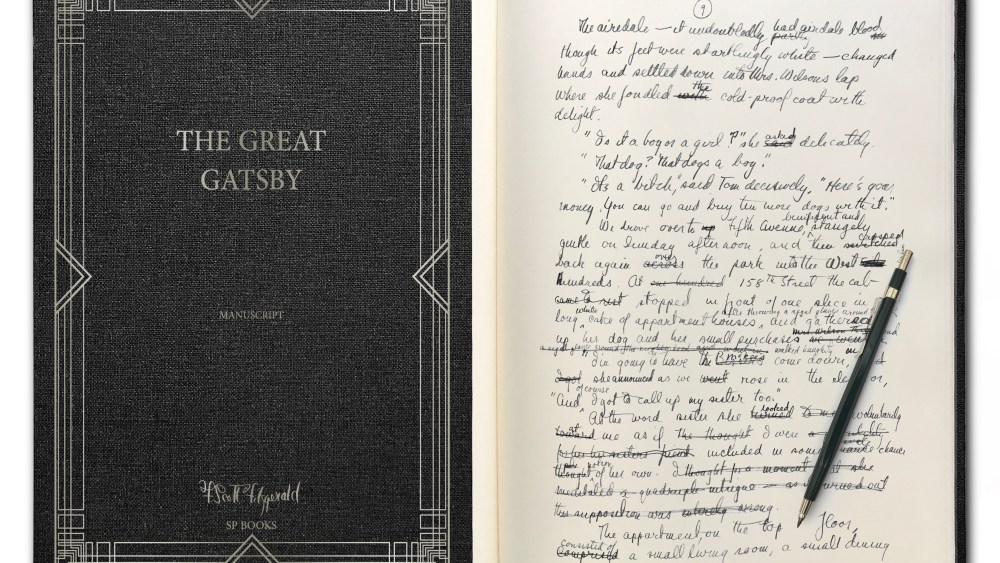 THE GREAT
GATSBY
MANUSCRIPT
F Scott Fitzgerald
SP BOOKS
9
The airedale — it undoubtedly had airdale blood
though its feet were startlingly white — changed
hands and settled down into Mrs. Wilsons lap
where she fondled the cold-proof coat with
delight.
"Is it a boy or a girl?" she asked delicately.
"That dog? That dogs a boy."
"Its a bitch," said Tom decisively. "Here's your
money. You can go and buy ten more dogs with it."
We drove over to Fifth Avenue, 
gentle on Sunday afternoon, and then
back again across over the park into the West
Hundreds. At one hundred 158th Street the cab
came to rest stopped in front of one place in
long white cake of appartment houses, and gathered
up her dog and her small purchases
"I'm going to have the come down,"
she announced as we went rose in the
"And of course I got to call up my sister too."
At the word sister she turned looked voluntarily
toward at me as if the thought I were
included in some chance
of her own. I thought for a moment
meditated a quadruple intrigue — as
this supposition was entirely wrong.
The appartment, on the top floor,
Comprised consisted of a small living room, a small dining